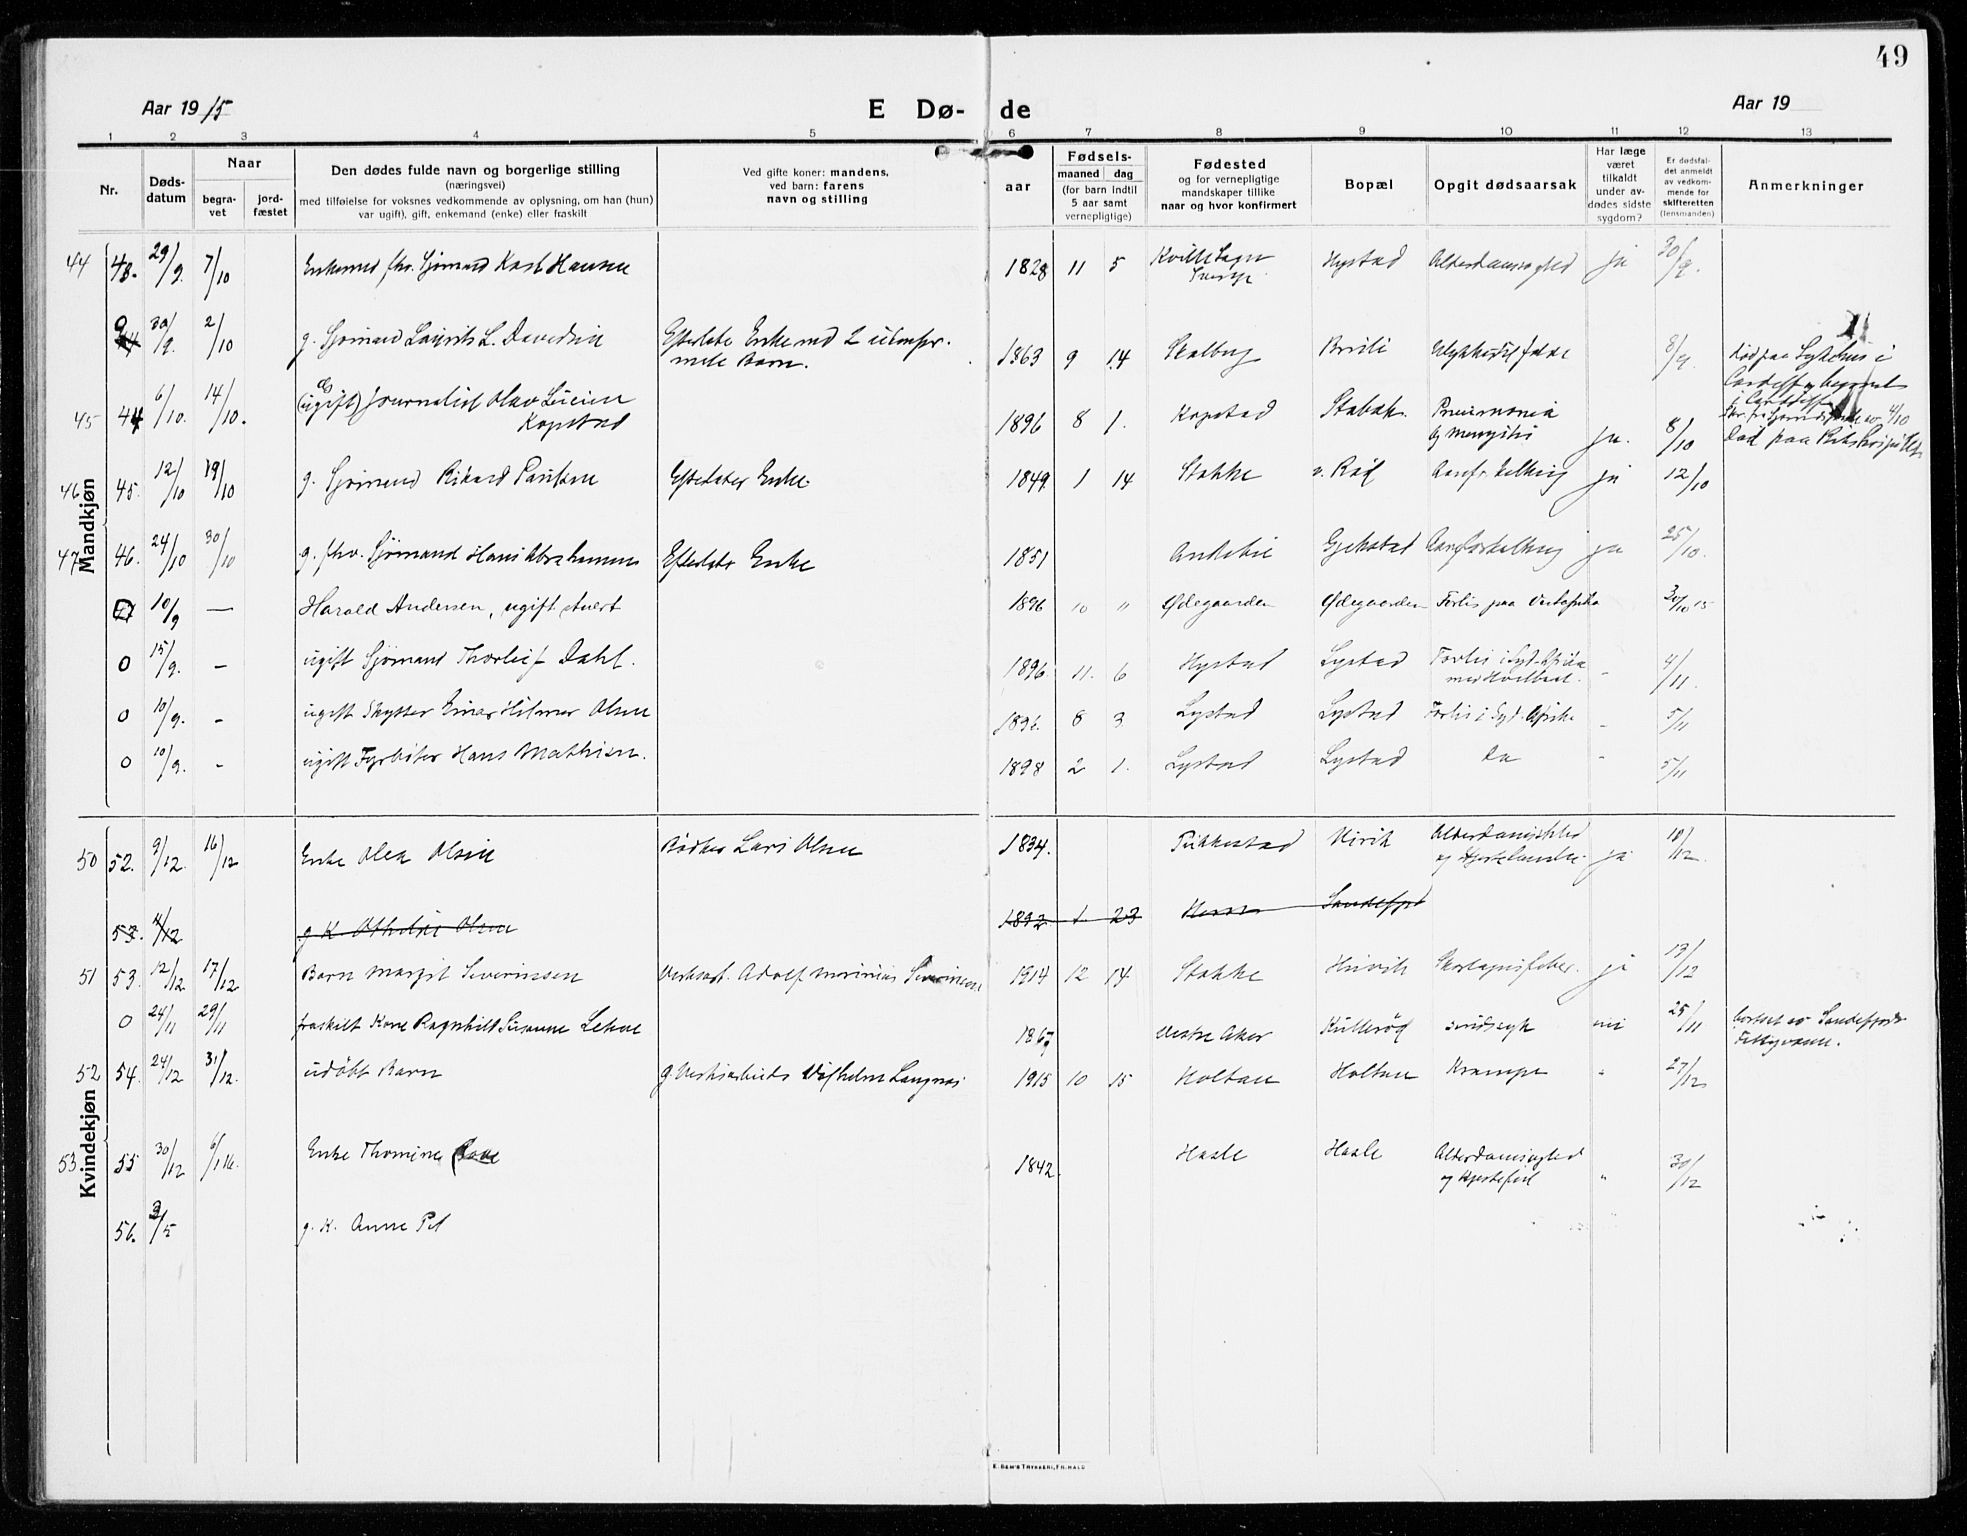 49
Aar 1915
E Dø- de
Aar 19
1 2 3 4 5 6 7 8 9 10 11 12 13
Nr.
Døds-
datum
Naar
begra-
vet
jord-
fæstet
Den dødes fulde navn og borgerlige stilling
(næringsvei)
med tilføielse for voksnes vedkommende av oplysning, om han (hun)
var ugift), gift, enkemand (enke) eller fraskilt
Ved gifte koner: mandens,
ved barn: farens
navn og stilling
aar
Fødsels-
maaned dag
(for barn indtil
5 aar samt
vernepligtige)
Fødested
og for vernepligtige
mandskaper tillike
naar og hvor konfirmert
Bopæl
Opgit dødsaarsak
Har læge
været
tilkaldt
under av-
dødes sidste
sygdom?
Er dødsfal-
det anmeldt
av vedkom-
mende for
skifteretten
(lensmanden)
Anmerkninger
Mandkjøn
44 29/9 7/10 Enkemand fhv. Sjømand Karl Hansen 1828 11 5 Hystad Alderdomssvaghed ja 30/9.
0 30/9. 2/10 g. Sjømand Laurits L. Davidsen Efterlater Enke med 2 uforsør-
mede Barn. 1863 9 14 Ulykkestilfælde 8/9 Død paa Sykehus i
Cardiff og begravet
i Cardiff
45 44 6/10. 14/10. (ugift) Journalist Olav
Kopstad 1896 8 1. Kopstad Stabæk Pneumonia
og ja. 8/10 Død paa Rikshospitalet
46 45. 12/10 19/10 g. Sjømand Rikard Paulsen Efterlater Enke. 1849 1 14 Stokke v. Rød ja 12/10
47 46. 24/10 30/10 g. fhv. Sjømand Hans Abrahamsen Efterlater Enke 1851 Andebu Gjekstad Aareforkalkning ja 25/10.
10/9 — Harald Andersen, ugift 1896 10 " Ødegaarden Ødegaarden Forlis paa Vestafrika 30/10 15
0 15/9. - ugift Sjømand Thorleif Dahl. 1896. 11. 6 Hystad Lystad Forlis i Syd-Afrika
med Hvalbaat. - 4/11.
0 10/9. - ugift Skytter Einar Hilmar Olsen 1896. 8 3 Lystad Lystad Forlis i Syd-Afrika - 5/11
0 10/9. - ugift Fyrbøter Hans Mathisen. 1898 2 1. Lystad Lystad Do - 5/11
Kvindekjøn
50 52. 9/12. 16/12 Enke Olea Olsen Bødker Lars Olsen 1834. Virik Alderdomssvakhed
og ja 10/12.
53. 4/12 g K. Olsen 1892 1. 23 Sandefjord
51 53. 12/12 17/12 Barn Margit Severinssen Verksarb. Adolf Marinius Severinsen 1914 12 14 Stokke Skarlagensfeber. ja 13/12
0 24/11 29/11 fraskilt Kone Ragnhild Susanne 1867 Vestre Aker Kullerød sindssyk nei 25/11 bortsat av Sandefjords
Fattigvæsen.
52 54. 24/12 31/12. udøbt Barn g Verksarbeider Vilhelm Langnæs 1915 10 15 Holtan Holtan Krampe " 27/12
53. 55 30/12 6/1 16. Enke Thomine 1842. Haale Haale Alderdomssvaghed
og Hjertefeil " 30/12
56. 3/5 g. K. Anne Pet
E. SEM'S TRYKKERI, FR.HALD